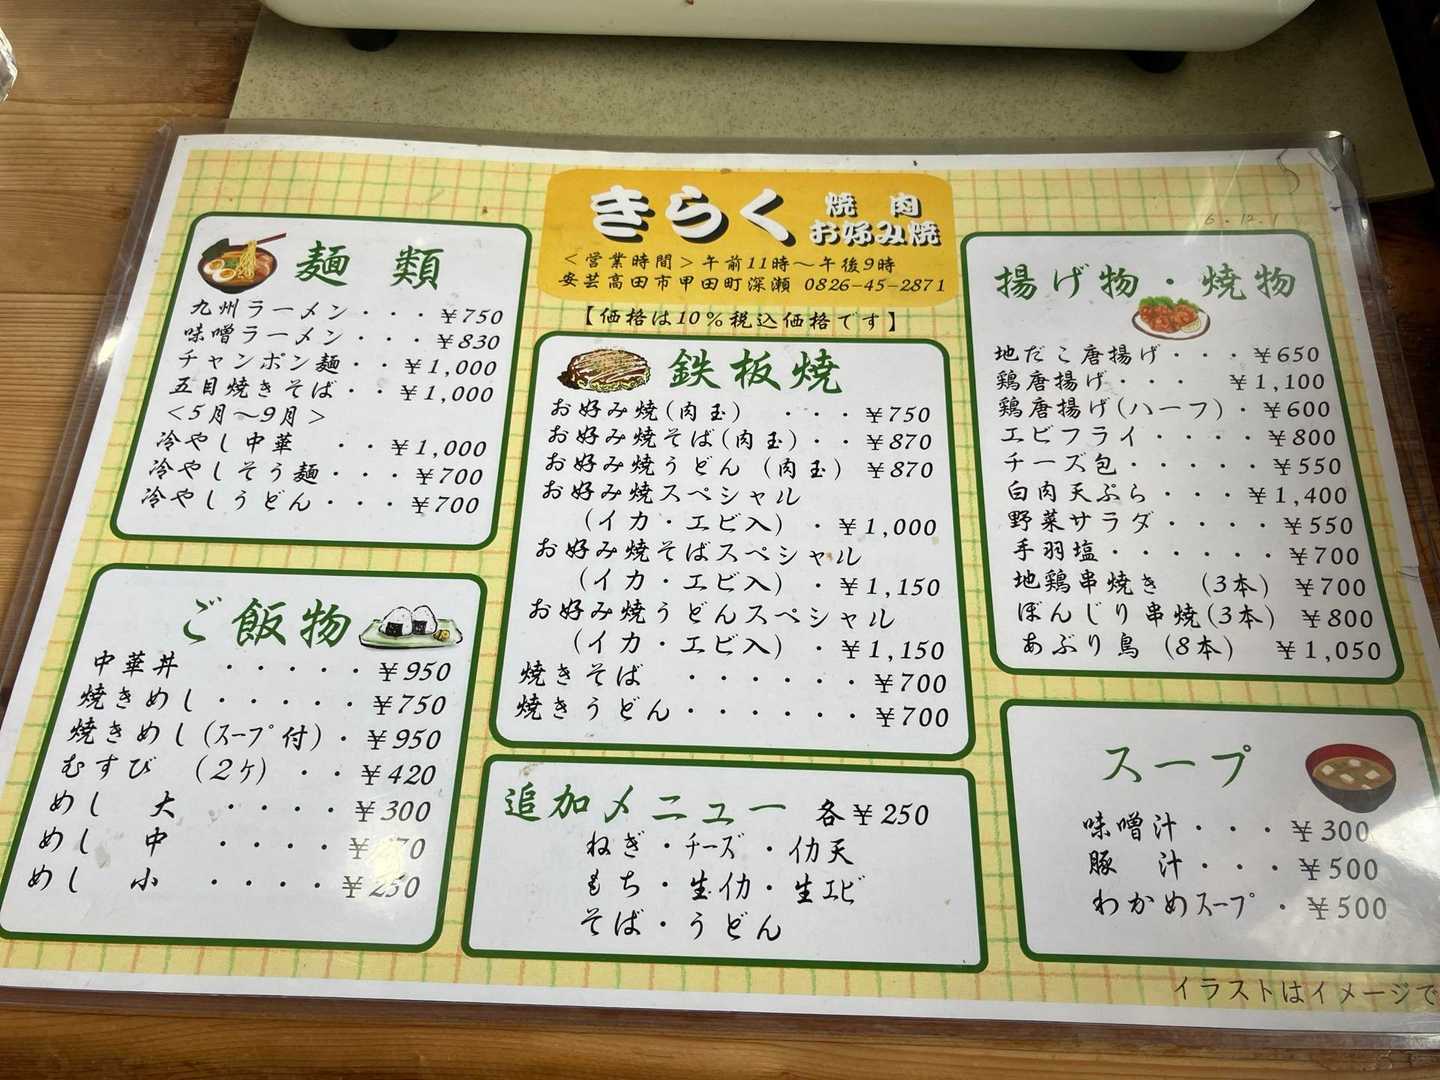 きらく 焼肉
お好み焼
＜営業時間＞午前11時〜午後9時
安芸高田市甲田町深瀬 0826-45-2871
【価格は10％税込価格です】
6.12.1
麺類
九州ラーメン・・・¥750
味噌ラーメン・・・¥830
チャンポン麺・・¥1,000
五目焼きそば・・¥1,000
＜5月〜9月＞
冷やし中華 ・・¥1,000
冷やしそう麺・・・¥700
冷やしうどん・・・¥700
ご飯物
中華丼 ・・・・・¥950
焼きめし・・・・・¥750
焼きめし(スープ付)・¥950
むすび (2ケ) ・・¥420
めし 大 ・・・・¥300
めし 中 ・・・・
めし 小 ・・・・¥250
鉄板焼
お好み焼(肉玉) ・・・¥750
お好み焼そば(肉玉)・・¥870
お好み焼うどん (肉玉) ¥870
お好み焼スペシャル
(イカ・エビ入) ・¥1,000
お好み焼そばスペシャル
(イカ・エビ入) ・¥1,150
お好み焼うどんスペシャル
(イカ・エビ入) ・¥1,150
焼きそば ・・・・・・¥700
焼きうどん・・・・・・¥700
追加メニュー 各¥250
ねぎ・チーズ・イカ天
もち・生イカ・生エビ
そば・うどん
揚げ物・焼物
地だこ唐揚げ・・・¥650
鶏唐揚げ・・・ ¥1,100
鶏唐揚げ(ハーフ)・¥600
エビフライ・・・・¥800
チーズ包・・・・・¥550
白肉天ぷら・・・¥1,400
野菜サラダ・・・・¥550
手羽塩・・・・・・¥700
地鶏串焼き (3本) ¥700
ぼんじり串焼(3本) ¥800
あぶり鳥 (8本) ¥1,050
スープ
味噌汁・・・¥300
豚 汁・・・¥500
わかめスープ・¥500
イラストはイメージで